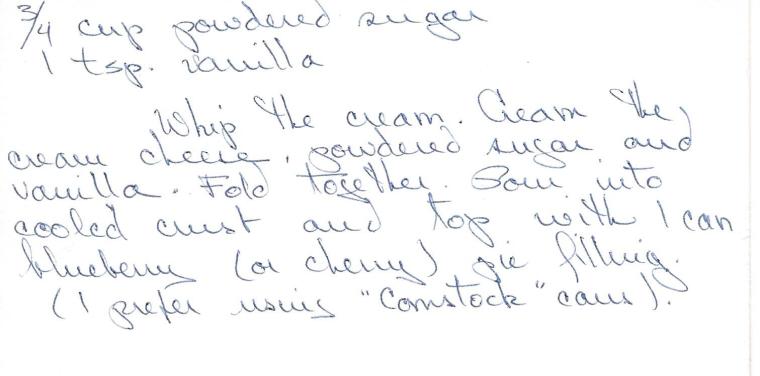 3/4 cup powdered sugar
1 tsp. vanilla
Whip the cream. Cream the
cream cheese, powdered sugar and
vanilla. Fold together. Pour into
cooled crust and top with 1 can
blueberry (or cherry) pie filling.
(I prefer using "Comstock" cans).